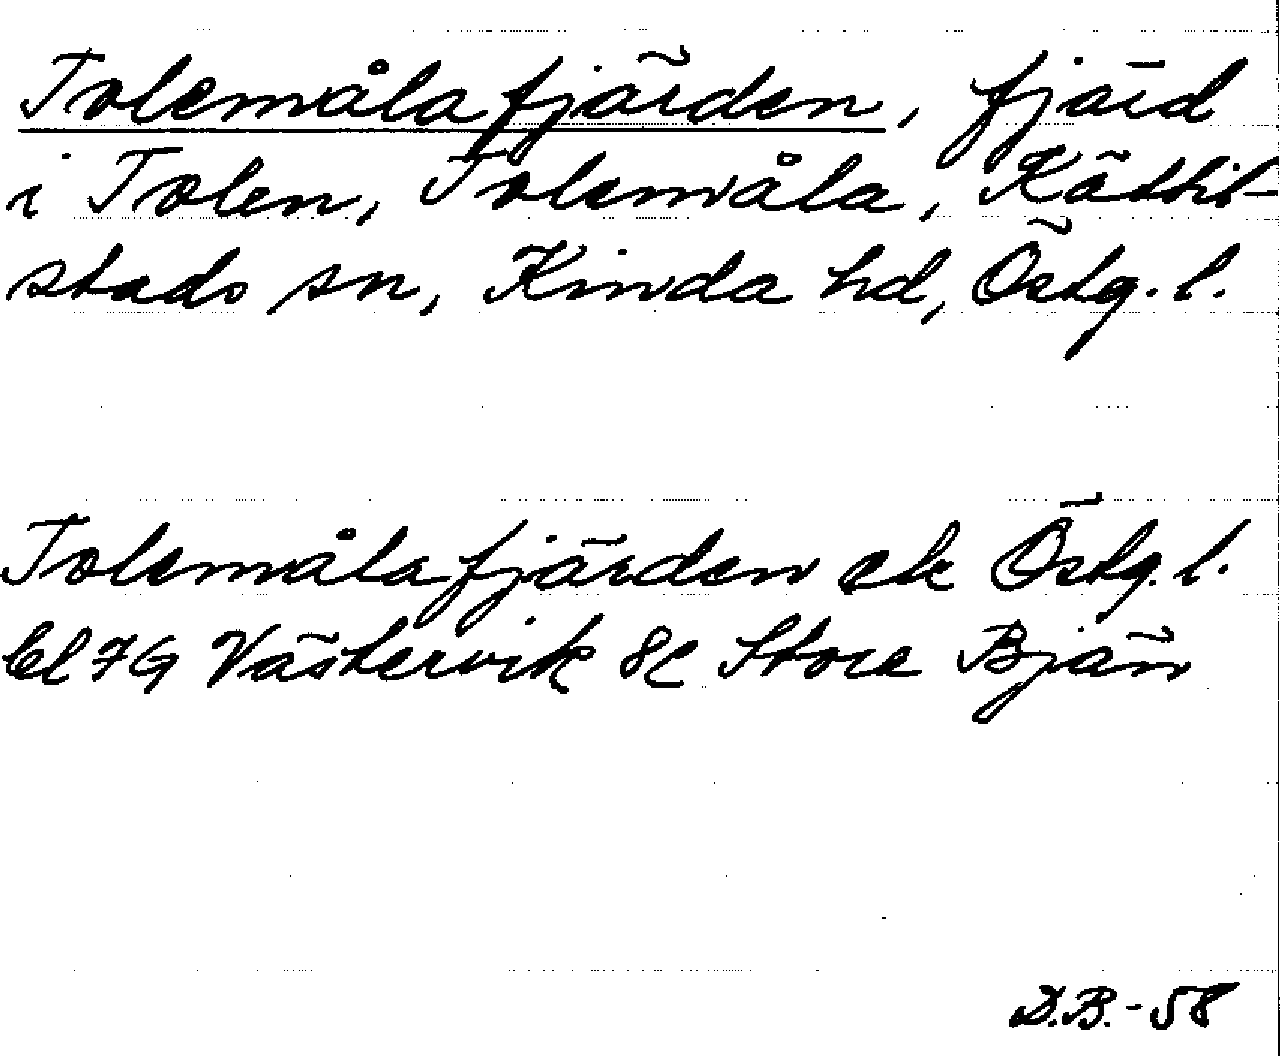 Tolemålafjärden, fjärd
i Tolen, Tolemåla, Kättil-
stads sn, Kinda hd, Östg. l.
Tolemålafjärden ek Östg. l.
bl 7G Västervik 8c Stora Bjän
D.B.-58